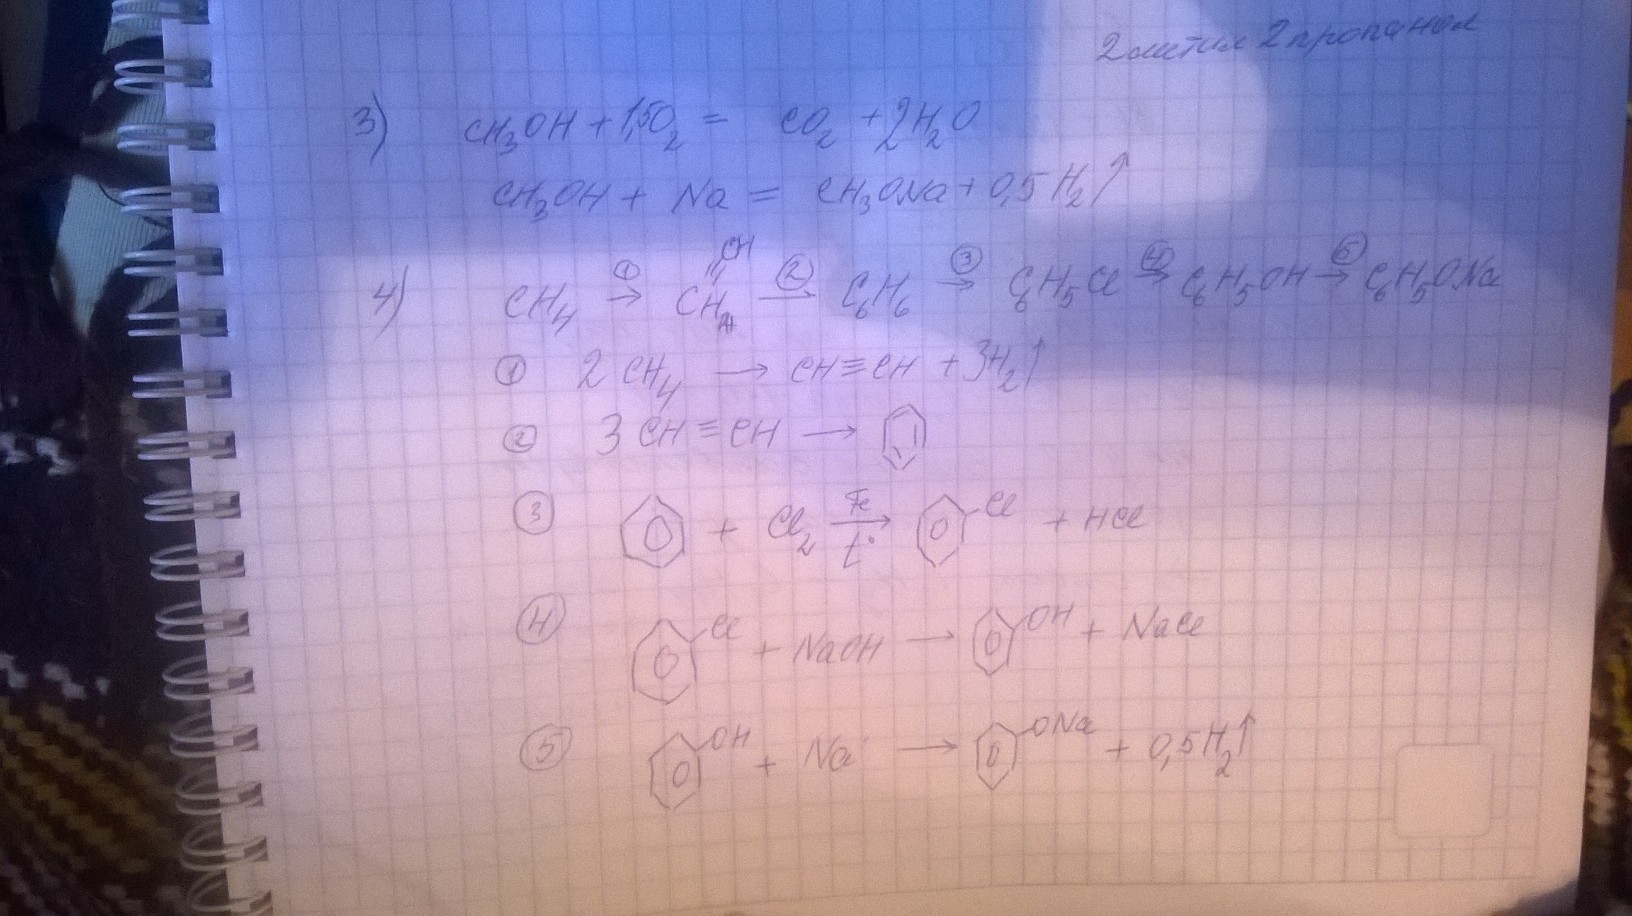 2 метил 2 пропанол
3) CH₃OH + 1,5O₂ = CO₂ + 2H₂O
CH₃OH + Na = CH₃ONa + 0,5 H₂↑
CH
4) CH₄ →① CH →② C₆H₆ →③ C₆H₅Cl →④ C₆H₅OH →⑤ C₆H₅ONa
① 2 CH₄ → CH≡CH + 3H₂↑
② 3 CH≡CH →
③ + Cl₂ Fe → t° Cl + HCl
④ Cl + NaOH → OH + NaCl
⑤ OH + Na → ONa + 0,5H₂↑